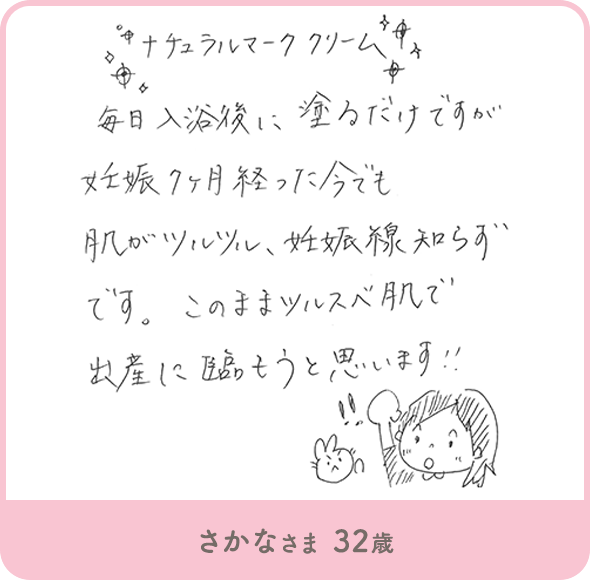 ナチュラルマーククリーム
毎日入浴後に塗るだけですが
妊娠7ヶ月経った今でも
肌がツルツル、妊娠線知らず
です。このままツルスベ肌で
出産に臨もうと思います!!
!!
さかなさま 32歳